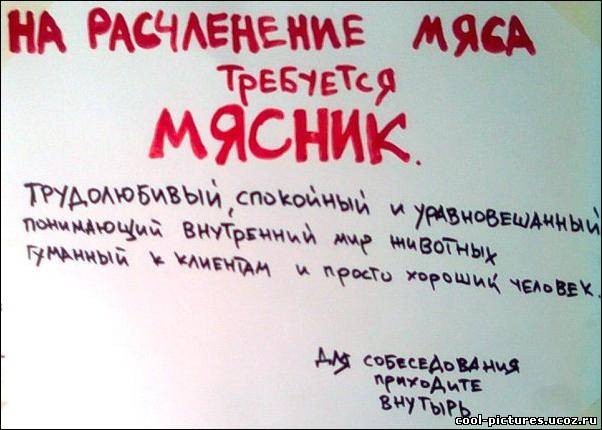 НА РАСЧЛЕНЕНИЕ МЯСА
ТРЕБУЕТСЯ
МЯСНИК.
ТРУДОЛЮБИВЫЙ, СПОКОЙНЫЙ И УРАВНОВЕШАННЫЙ
ПОНИМАЮЩИЙ ВНУТРЕННИЙ МИР ЖИВОТНЫХ
ГУМАННЫЙ К КЛИЕНТАМ И ПРОСТО ХОРОШИЙ ЧЕЛОВЕК.
ДЛЯ СОБЕСЕДОВАНИЯ
ПРИХОДИТЕ
ВНУТЫРЬ
cool-pictures.ucoz.ru